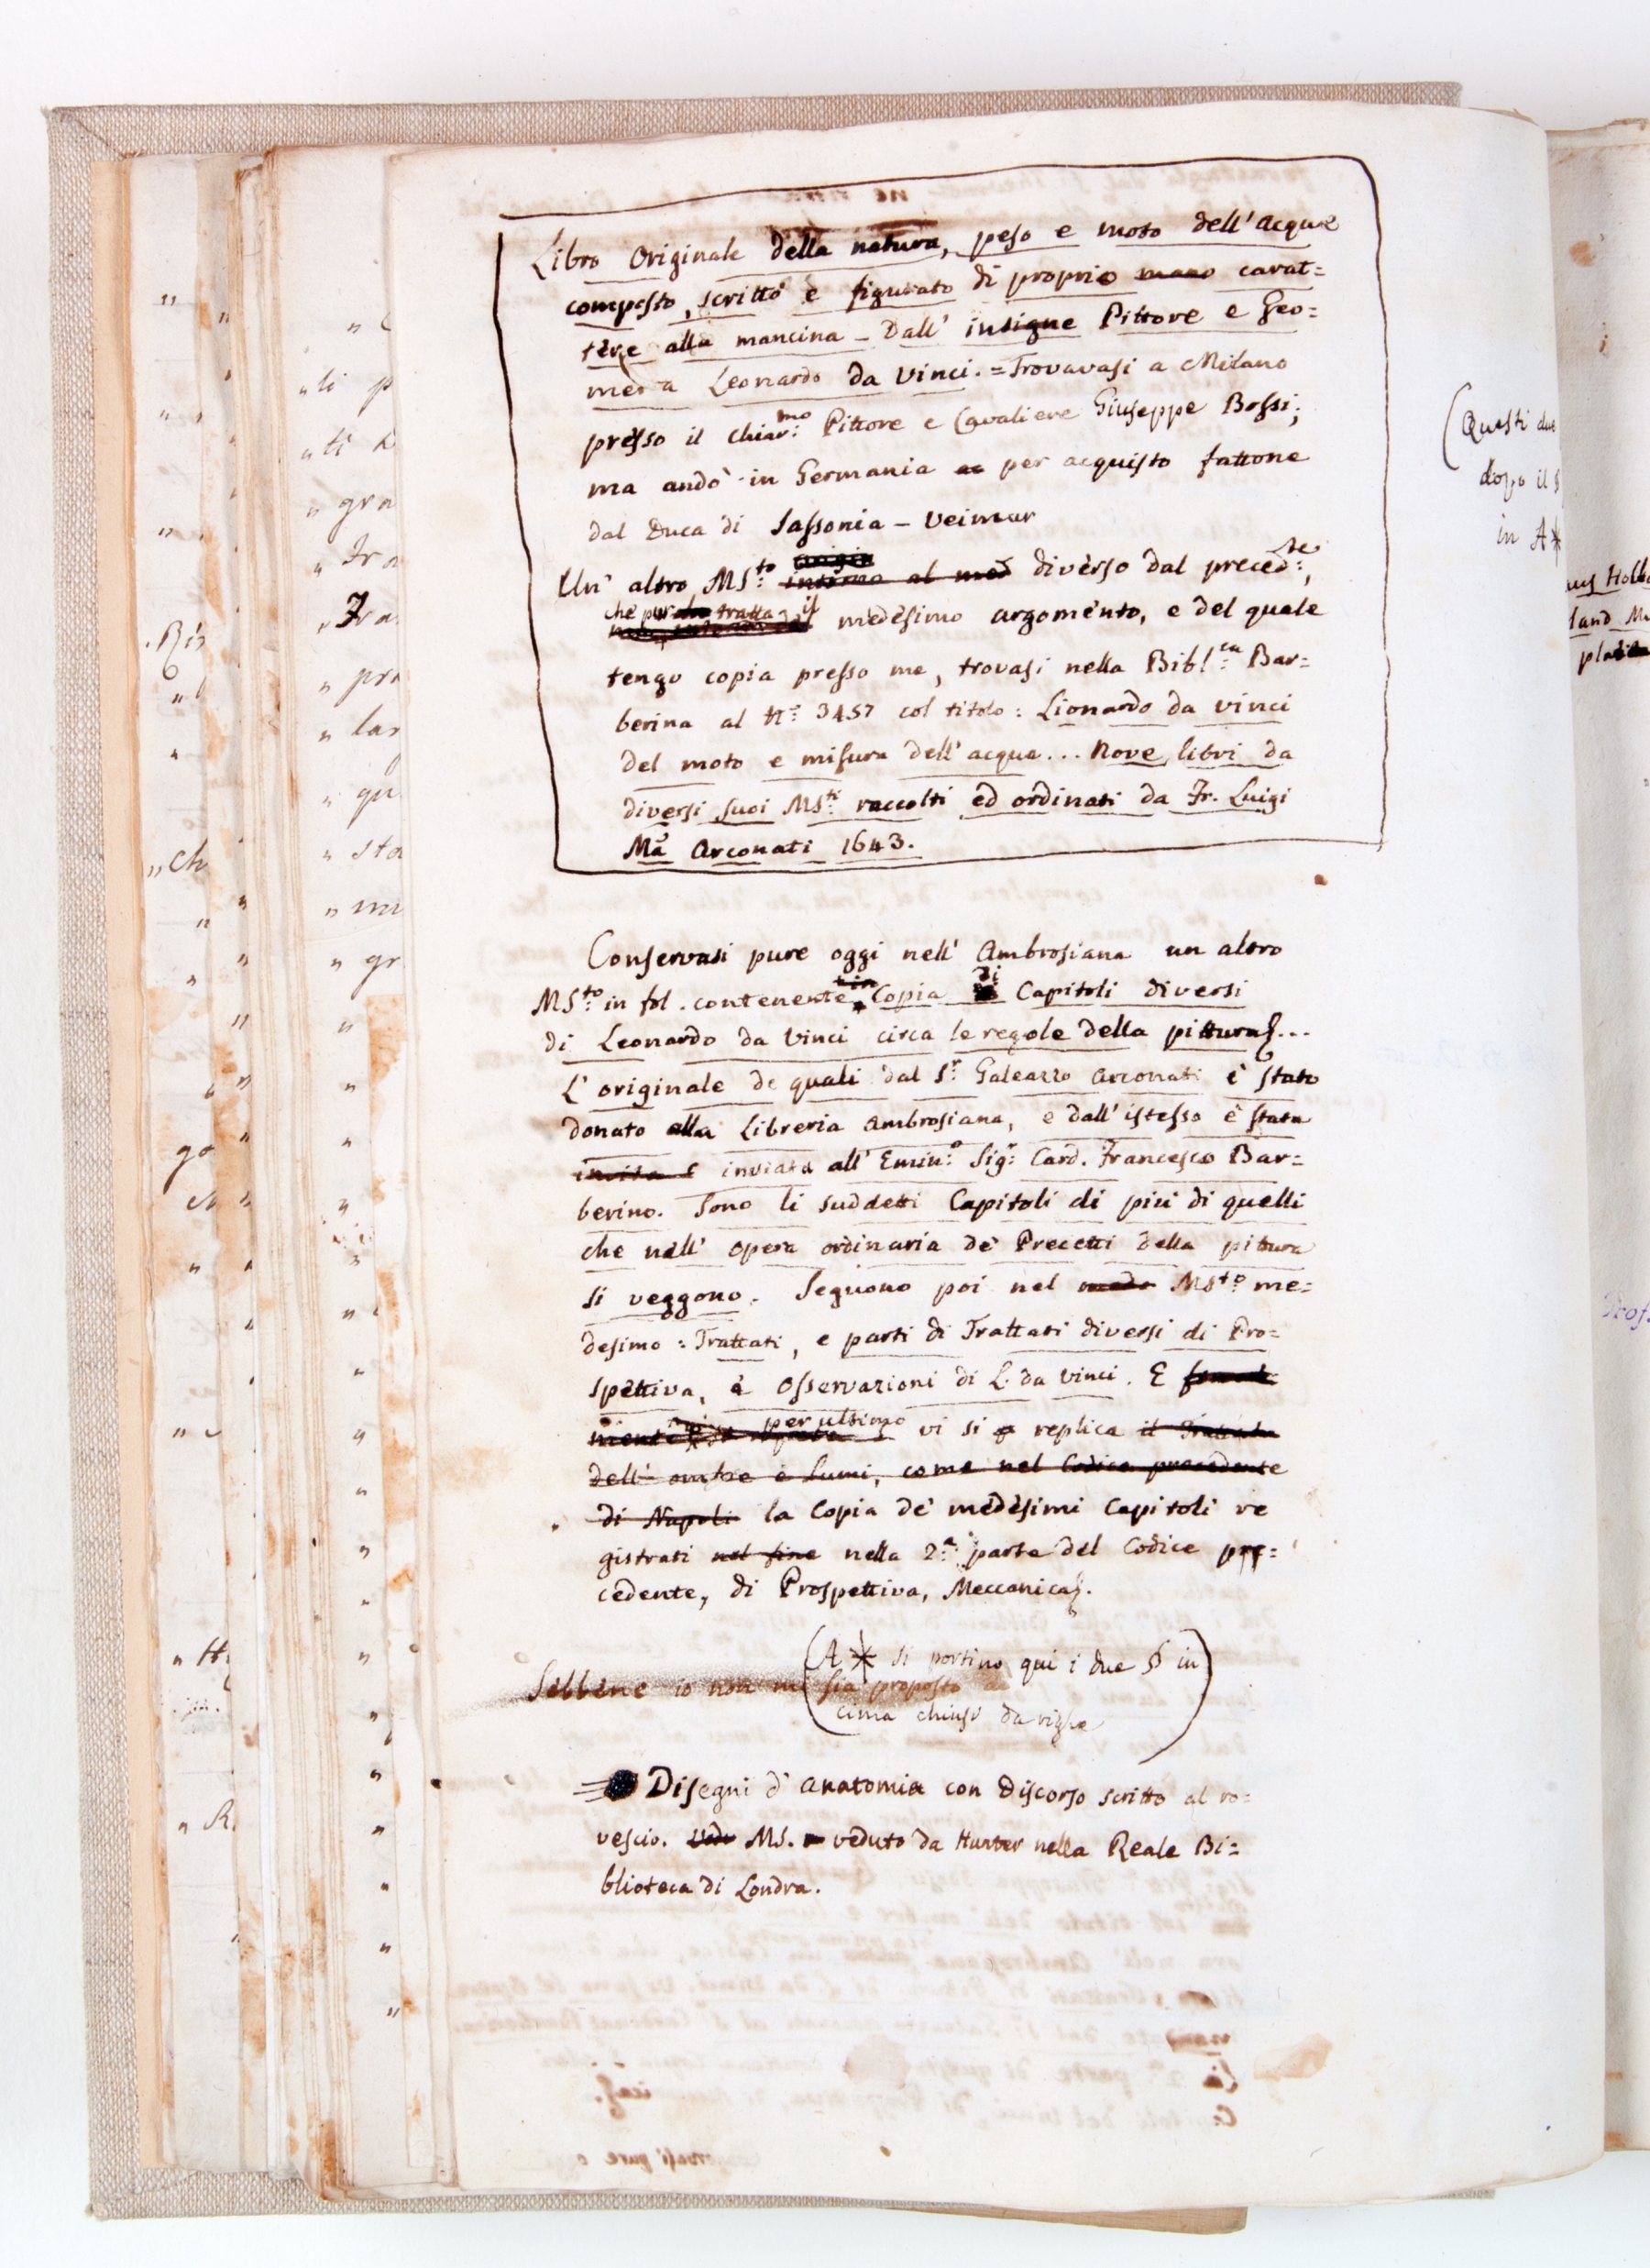 Libro Originale della natura, peso e moto dell' acque
composto, scritto e figurato di proprio mano carat=
tere alla mancina – Dall' insigne Pittore e Geo=
metra Leonardo da Vinci. = Trovavasi a Milano
presso il Chiar:mo Pittore e Cavaliere Giuseppe Bossi;
ma andò in Germania per acquisto fattone
dal Duca di Sassonia – Veimar
Un' altro MS:to diverso dal preced:te,
che pur tratta il medesimo argomento, e del quale
tengo copia presso me, trovasi nella Bibl:ca Bar=
berina al N:o 3457 col titolo: Lionardo da Vinci
del moto e misura dell' acqua... Nove libri da
diversi suoi MS:ti raccolti ed ordinati da Fr. Luigi
Ma Arconati 1643.
Conservasi pure oggi nell' Ambrosiana un altro
MS:to in fol. contenente Copia di Capitoli diversi
di Leonardo da Vinci circa le regole della pittura...
L' originale de quali dal S:r Galeazzo Arconati è stato
donato alla Libreria Ambrosiana, e dall' istesso è stata
inviata all' Emin:o Sig:r Card. Francesco Bar=
berino. Sono li suddetti Capitoli di più di quelli
che nell' opera ordinaria de' Precetti della pittura
si veggono. Seguono poi nel MS:to me=
desimo: Trattati, e parti di Trattati diversi di Pro=
spettiva, è Osservazioni di L. da Vinci. E
per ultimo vi si replica il Trattato
dell' ombre e lumi, come nel Codice precedente
di Napoli la Copia de' medesimi Capitoli re
gistrati nel fine nella 2:a parte del Codice pre=
cedente, di Prospettiva, Meccanica.
(A* si portino qui i due § in
Sebbene io non mi sia proposto
cima chiusi da righe)
Disegni d' anatomia con discorso scritto al ro=
vescio. MS. veduto da Hunter nella Reale Bi=
blioteca di Londra.
(Questi due
dopo il
in A*